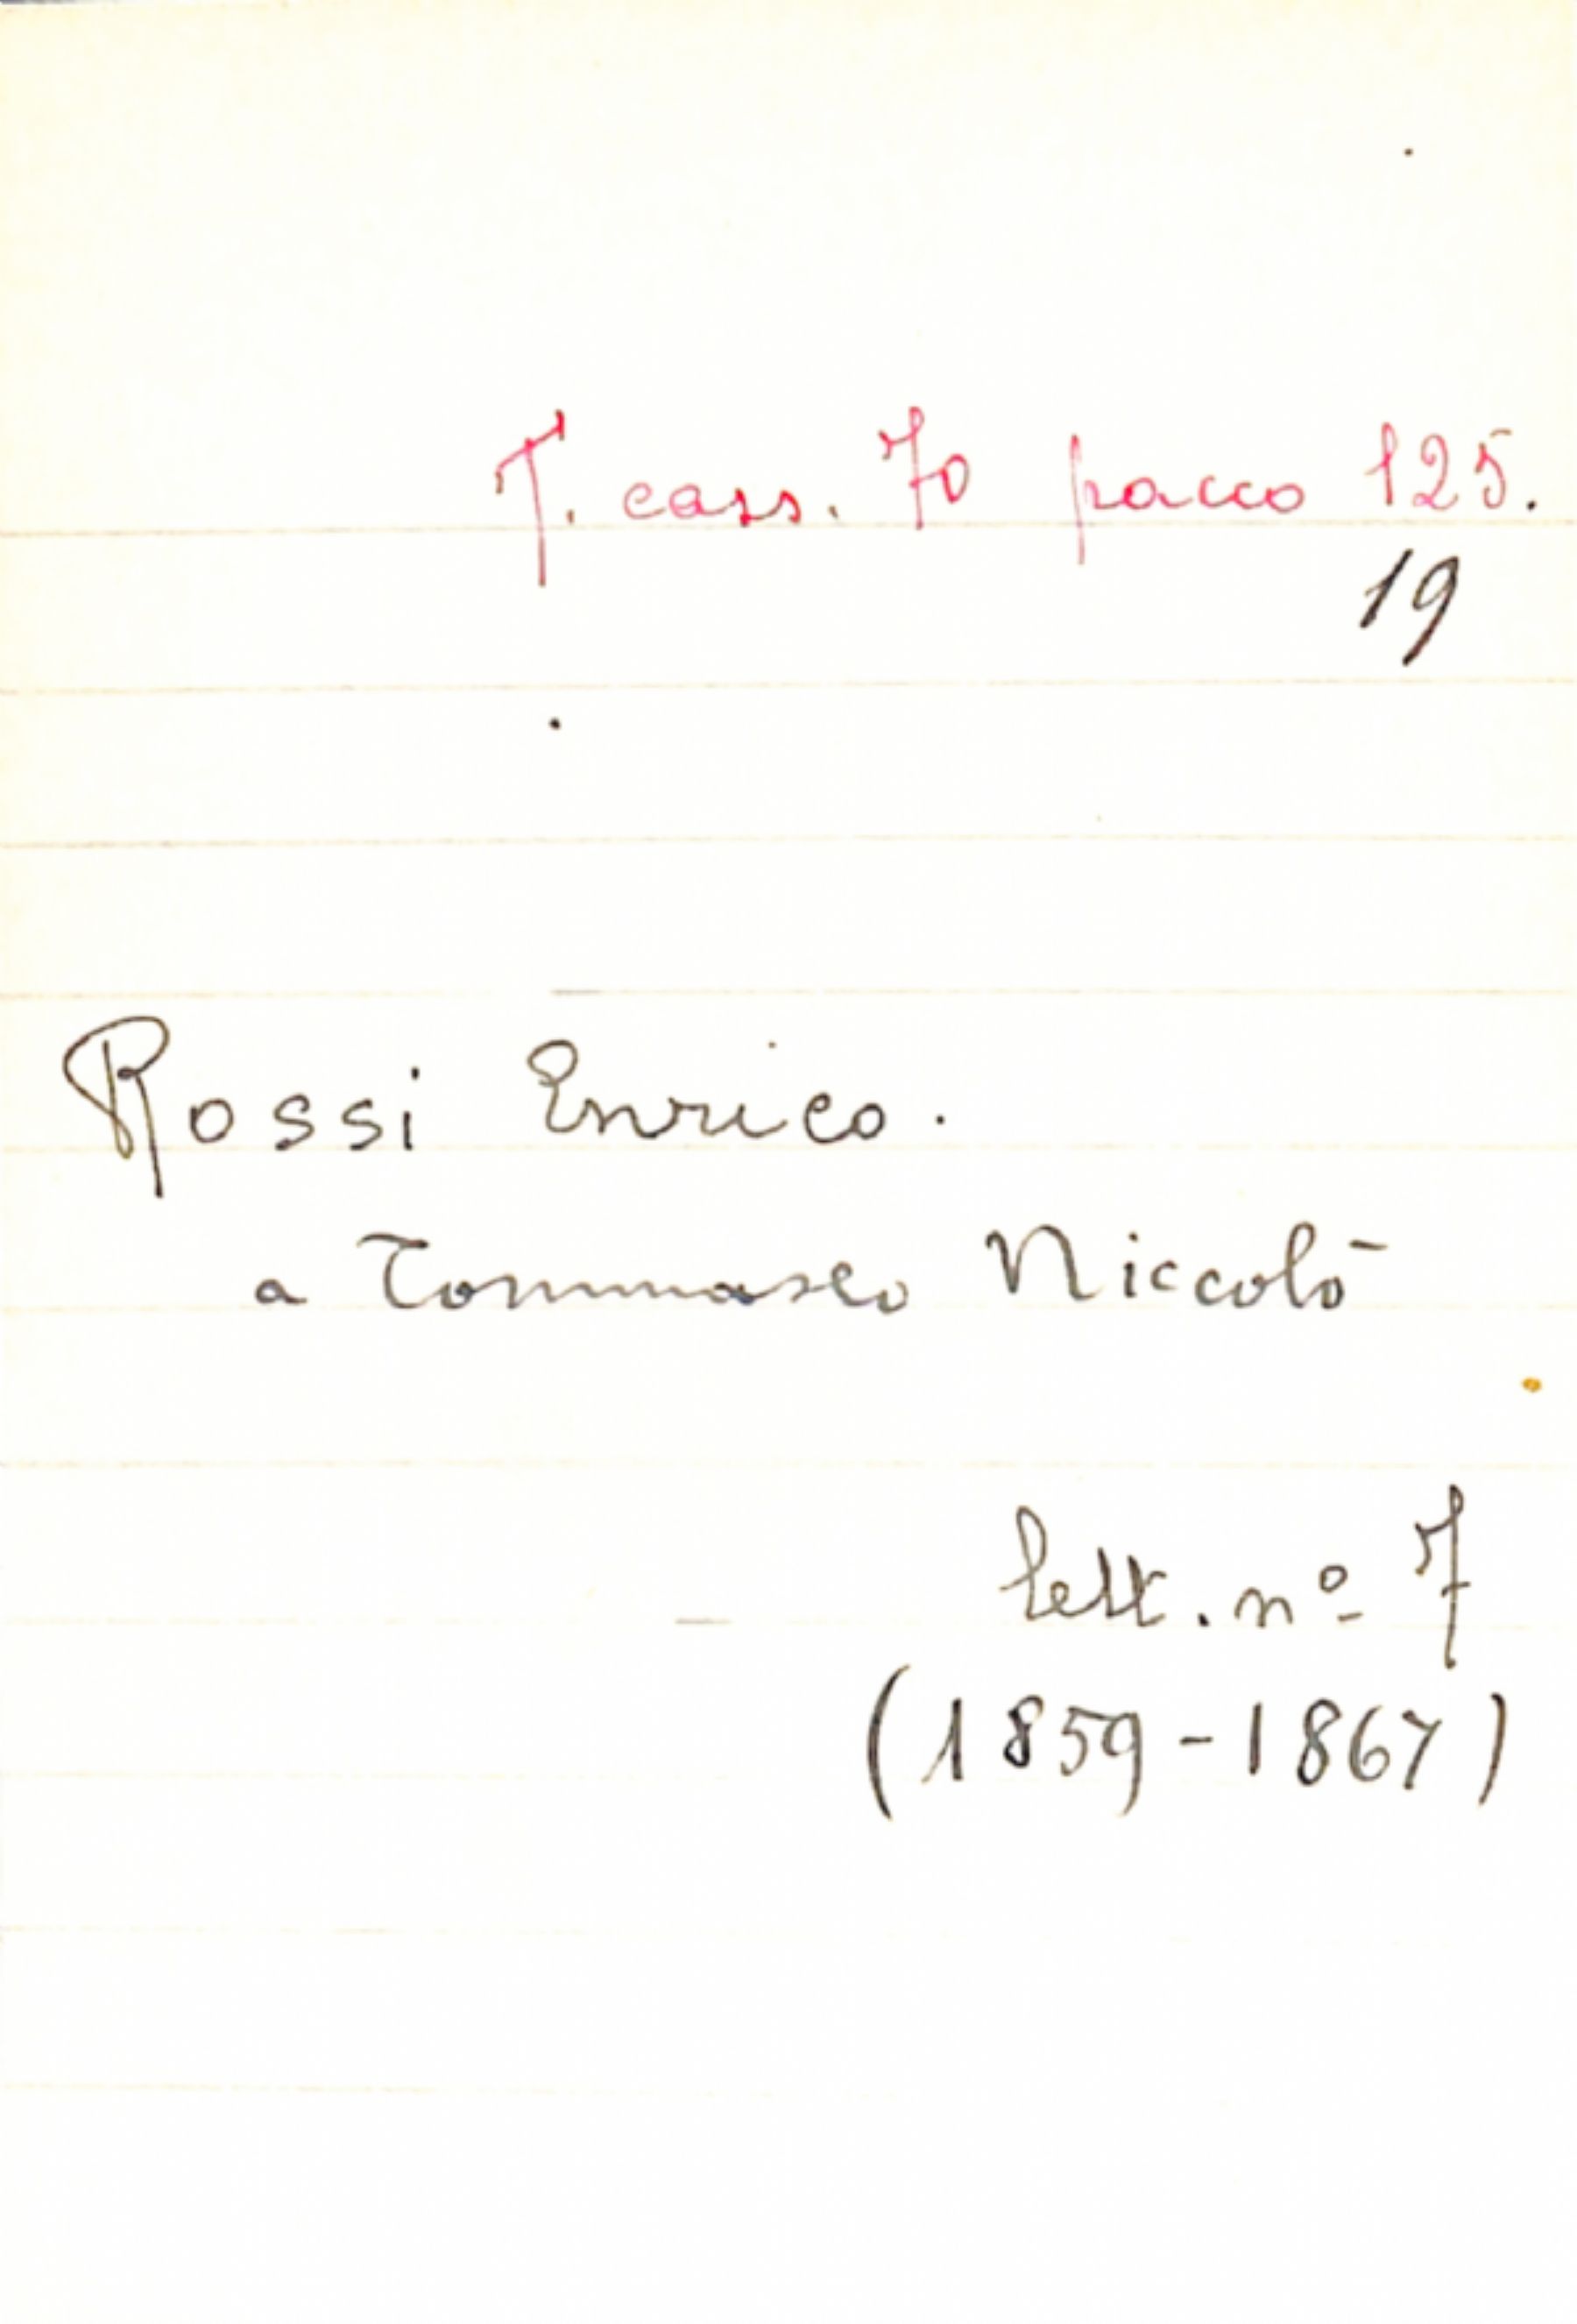 T. cass. 70 pacco 125.
19
Rossi Enrico.
a Tommaseo Niccolò
lett. nº 7
(1859-1867)